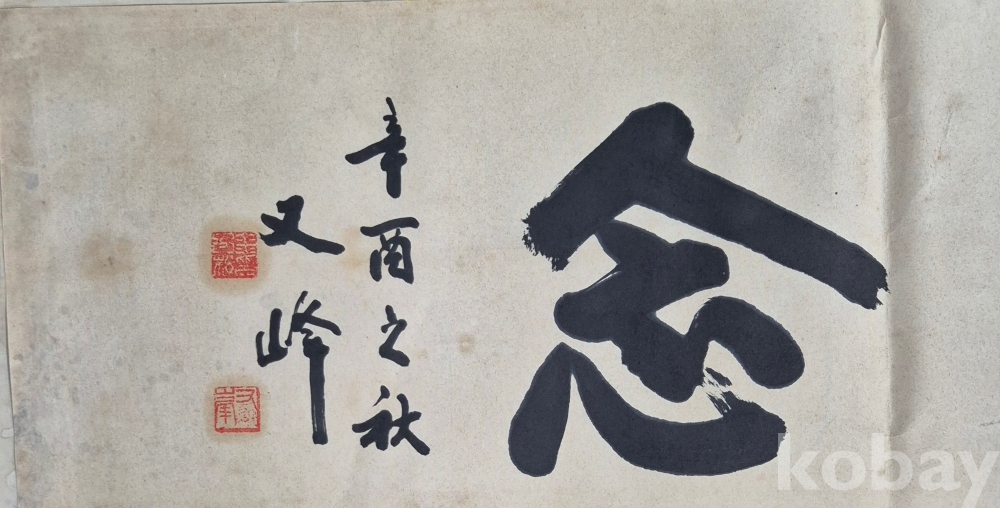 念
辛酉之秋
又峰
又峰
kobay